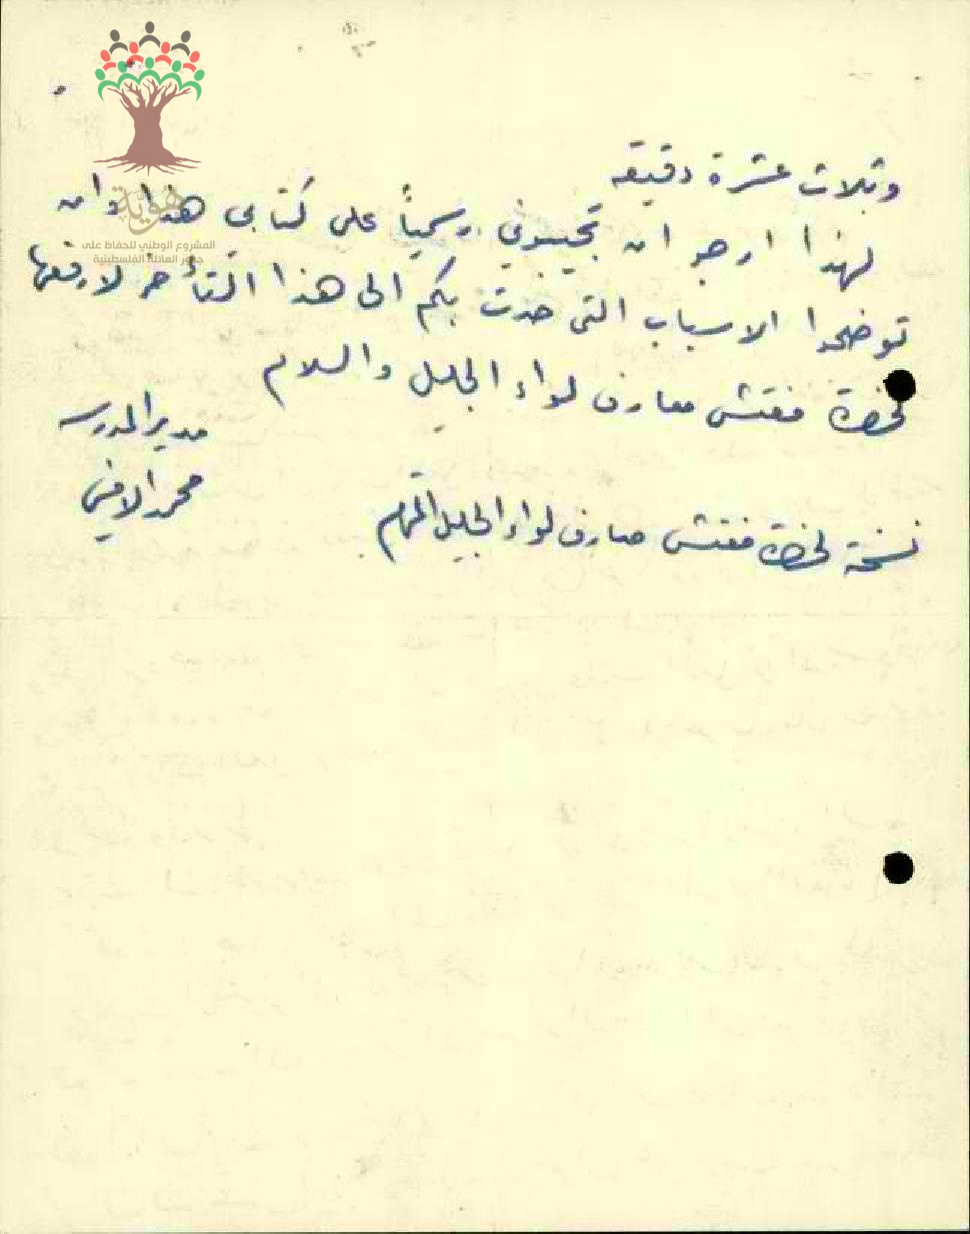 وثلاث عشرة دقيقه
لهذا ارجو ان تجيبوني رسمياً على كتابي هذا وان
توضحوا الاسباب التي حدت بكم الى هذا التأخر لارفعها
لحضرة مفتش معارف لواء الجليل والسلام
مدير المدرسه
محمد
نسخة لحضرة مفتش معارف لواء الجليل
هوية
المشروع الوطني للحفاظ على
جذور العائلة الفلسطينية